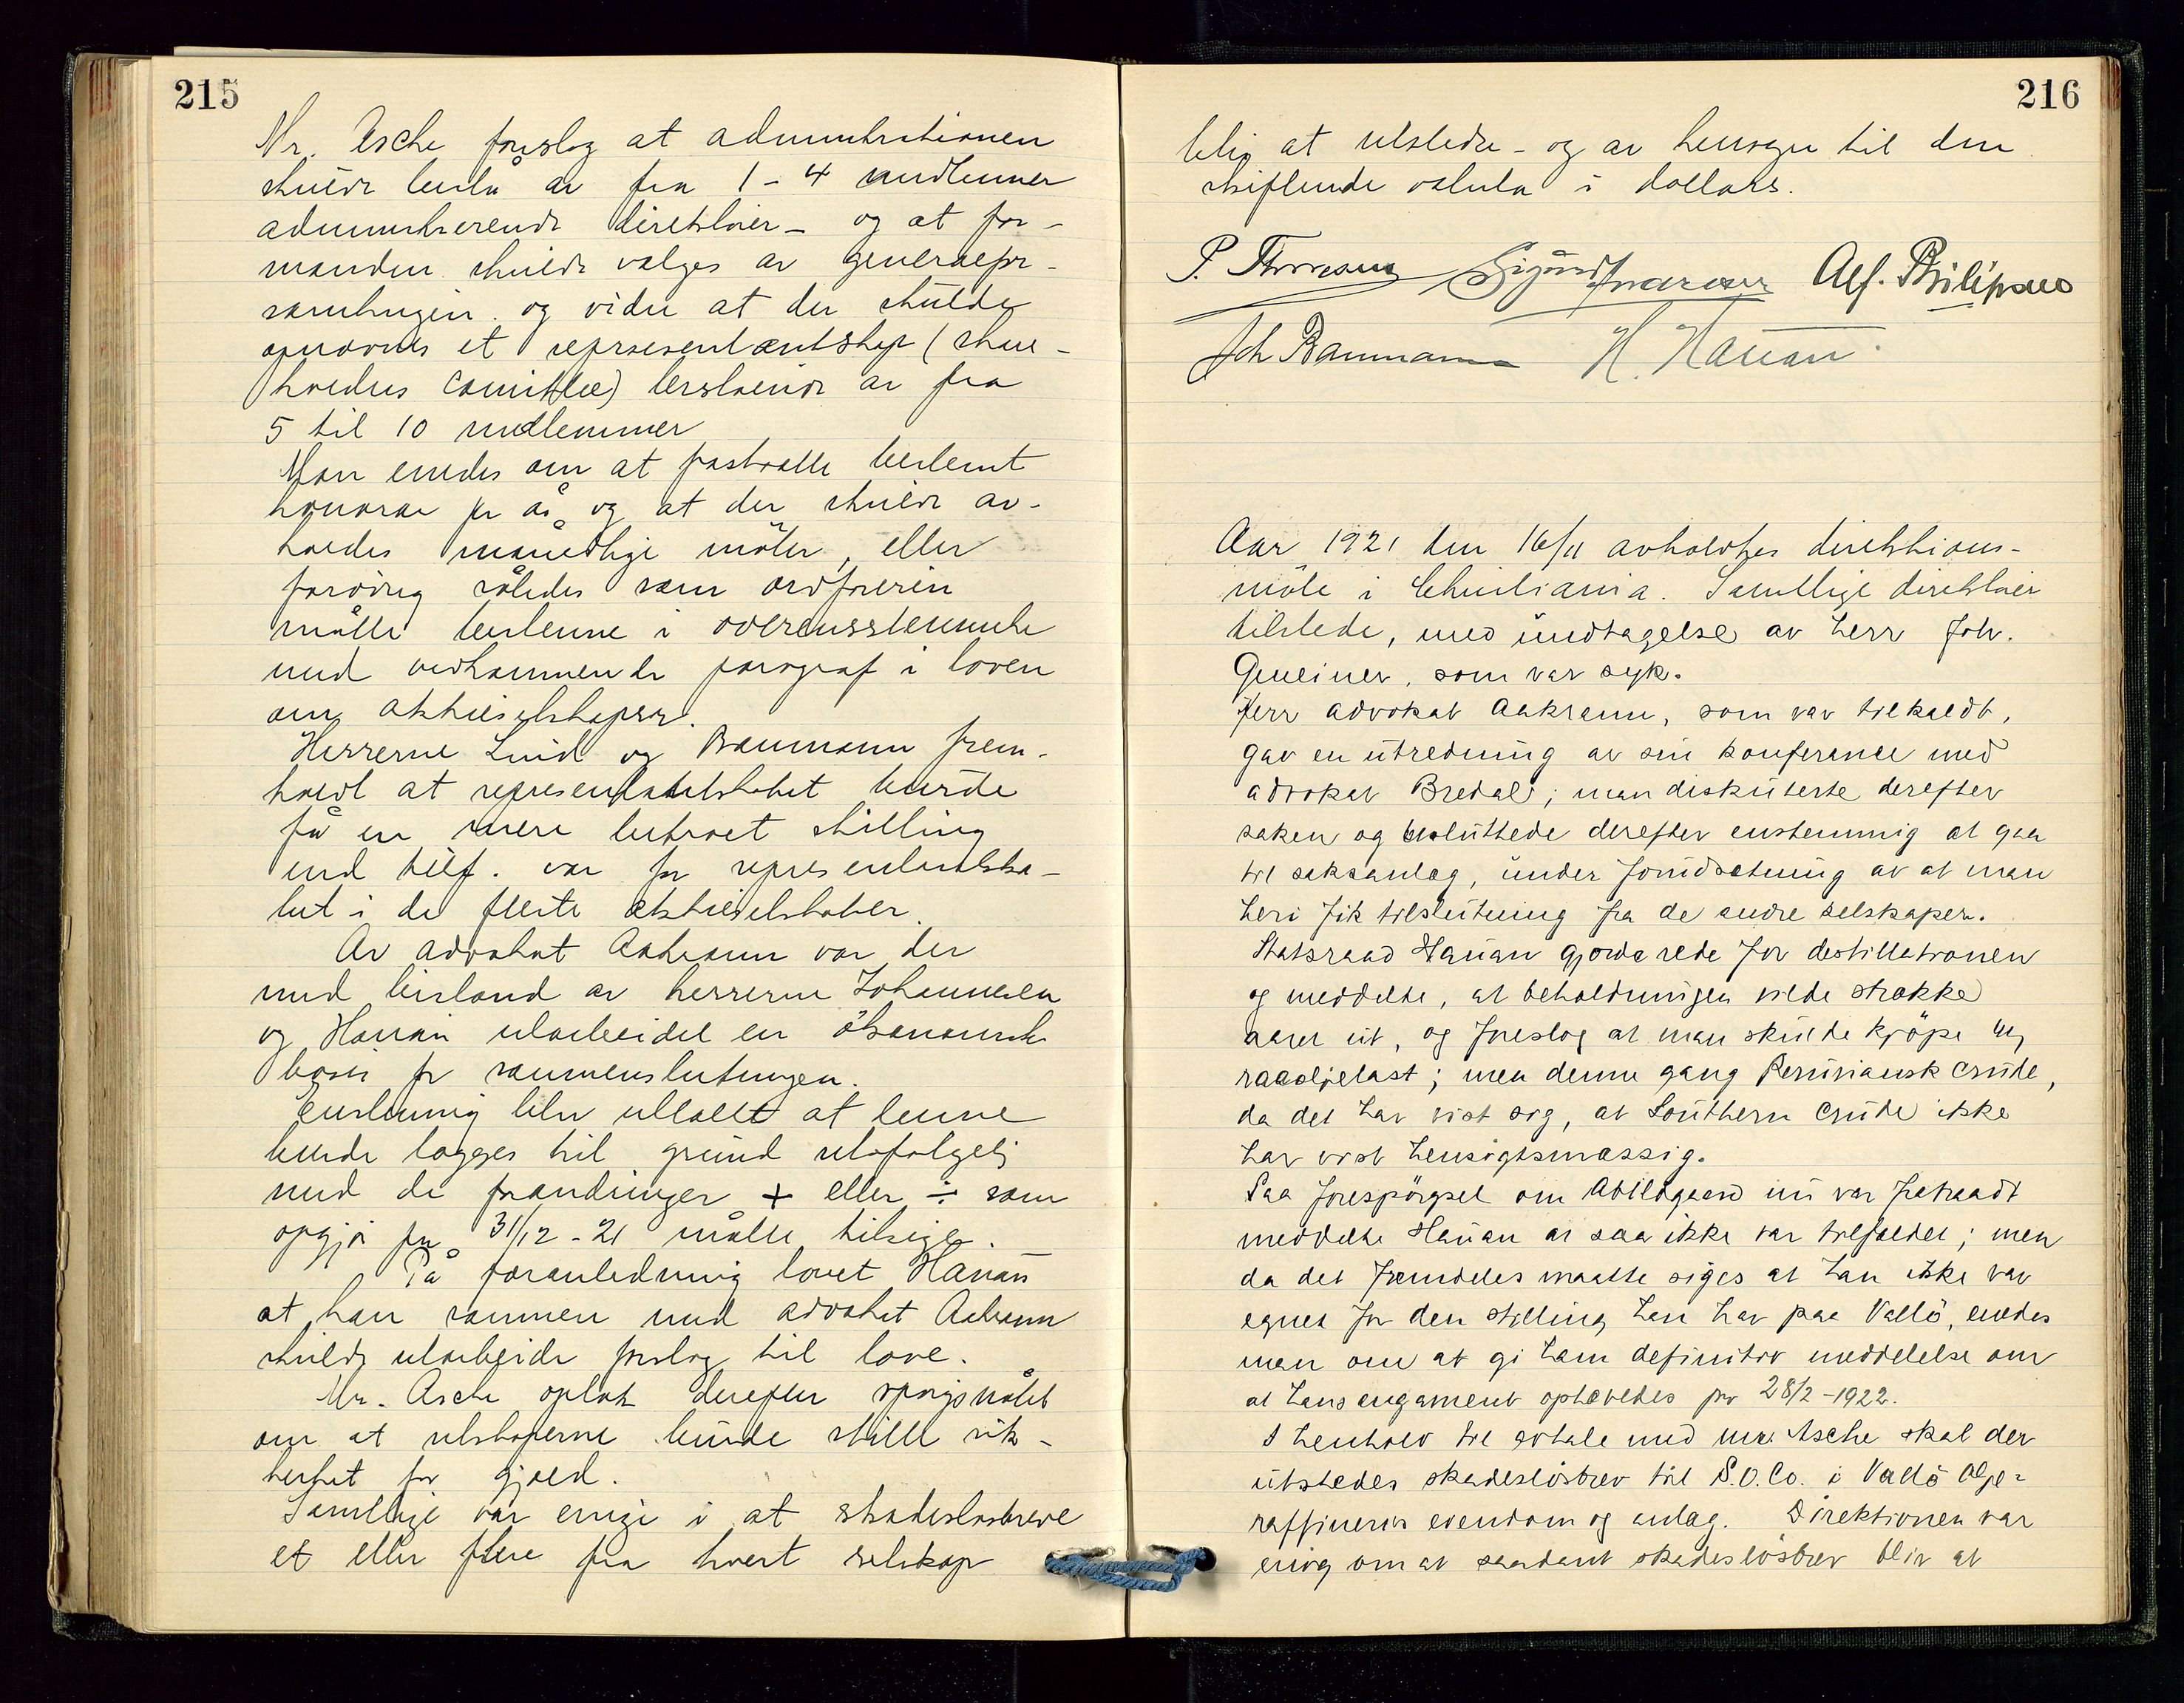 215
Mr. Asche foreslog at administrationen
skulde bestå av fra 1 - 4 medlemmer
administrerende direktører - og at for-
manden skulde vælges av generalfor-
samlingen. og videre at der skulde
opnævnes et repræsentantskap (share-
holders comittee) bestående av fra
5 til 10 medlemmer
Man enedes om at fastsætte bestemt
honorar pr år, og at der skulde av-
holdes månedlige möter, eller
forövrig således som ordföreren
måtte bestemme i overensstemmelse
med vedkommende paragraf i loven
om aktieselskaper.
Herrerne Lind og Baumann frem-
holdt at representantskabet burde
få en mere betroet stilling
end tilf. var for representantska-
bet i de fleste aktieselskaber.
Av advokat Aakrann var der
med bistand av herrerne Johannesen
og Hauan utarbeidet en ökonomisk
basis for sammenslutningen.
Enstemmig blev uttalt at denne
burde lægges til grund selvfølgelig
med de forandringer + eller ÷ som
opgjör pr 31/12 - 21 måtte tilsige.
På foranledning lovet Hauan
at han sammen med advokat Aakrann
skulde utarbeide forslag til love.
Mr. Asche optok derefter spörgsmålet
om at selskaperne burde stille sik-
kerhet for gjæld.
Samtlige var enige i at skadeslösbreve
et eller flere fra hvert selskap
216
blir at utstede - og av hensyn til den
skiftende valuta i dollars.
P. Thoresen Sigurd Alf. Philipsen
Joh Baumann H. Hauan
Aar 1921 den 16/11 avholdtes direktions-
möte i Christiania. Samtlige direktører
tilstede, med undtagelse av herr Joh.
Gmeiner, som var syk.
Herr advokat Aakrann, som var tilkaldt,
gav en utredning av sin konferance med
advokat Bredal; man diskuterte derefter
saken og besluttede derefter enstemmig at gaa
til saksanlæg, under forudsætning av at man
heri fik tilslutning fra de andre selskaper.
Statsraad Hauan gjorde rede for destillationen
og meddelte, at beholdningen vilde strække
aaret ut, og foreslog at man skulde kjöpe ny
raaoljelast; men denne gang Peruviansk crude,
da det har vist sig, at Southern crude ikke
har vist hensigtsmæssig.
Paa forespörgsel om Abildgaard nu var fratraadt
meddelte Hauan at saa ikke var tilfældet; men
da det fremdeles maatte siges at han ikke var
egnet for den stilling han har paa Vallö, enedes
man om at gi ham definitiv meddelelse om
at hans engagement ophævedes pr 28/2 - 1922.
I henhold til avtale med mr. Asche skal der
utstedes skadeslösbrev til S.O.Co. i Vallö Olje-
raffineris eiendom og anlæg. Direktionen var
enig om at saadant skadeslösbrev blir at